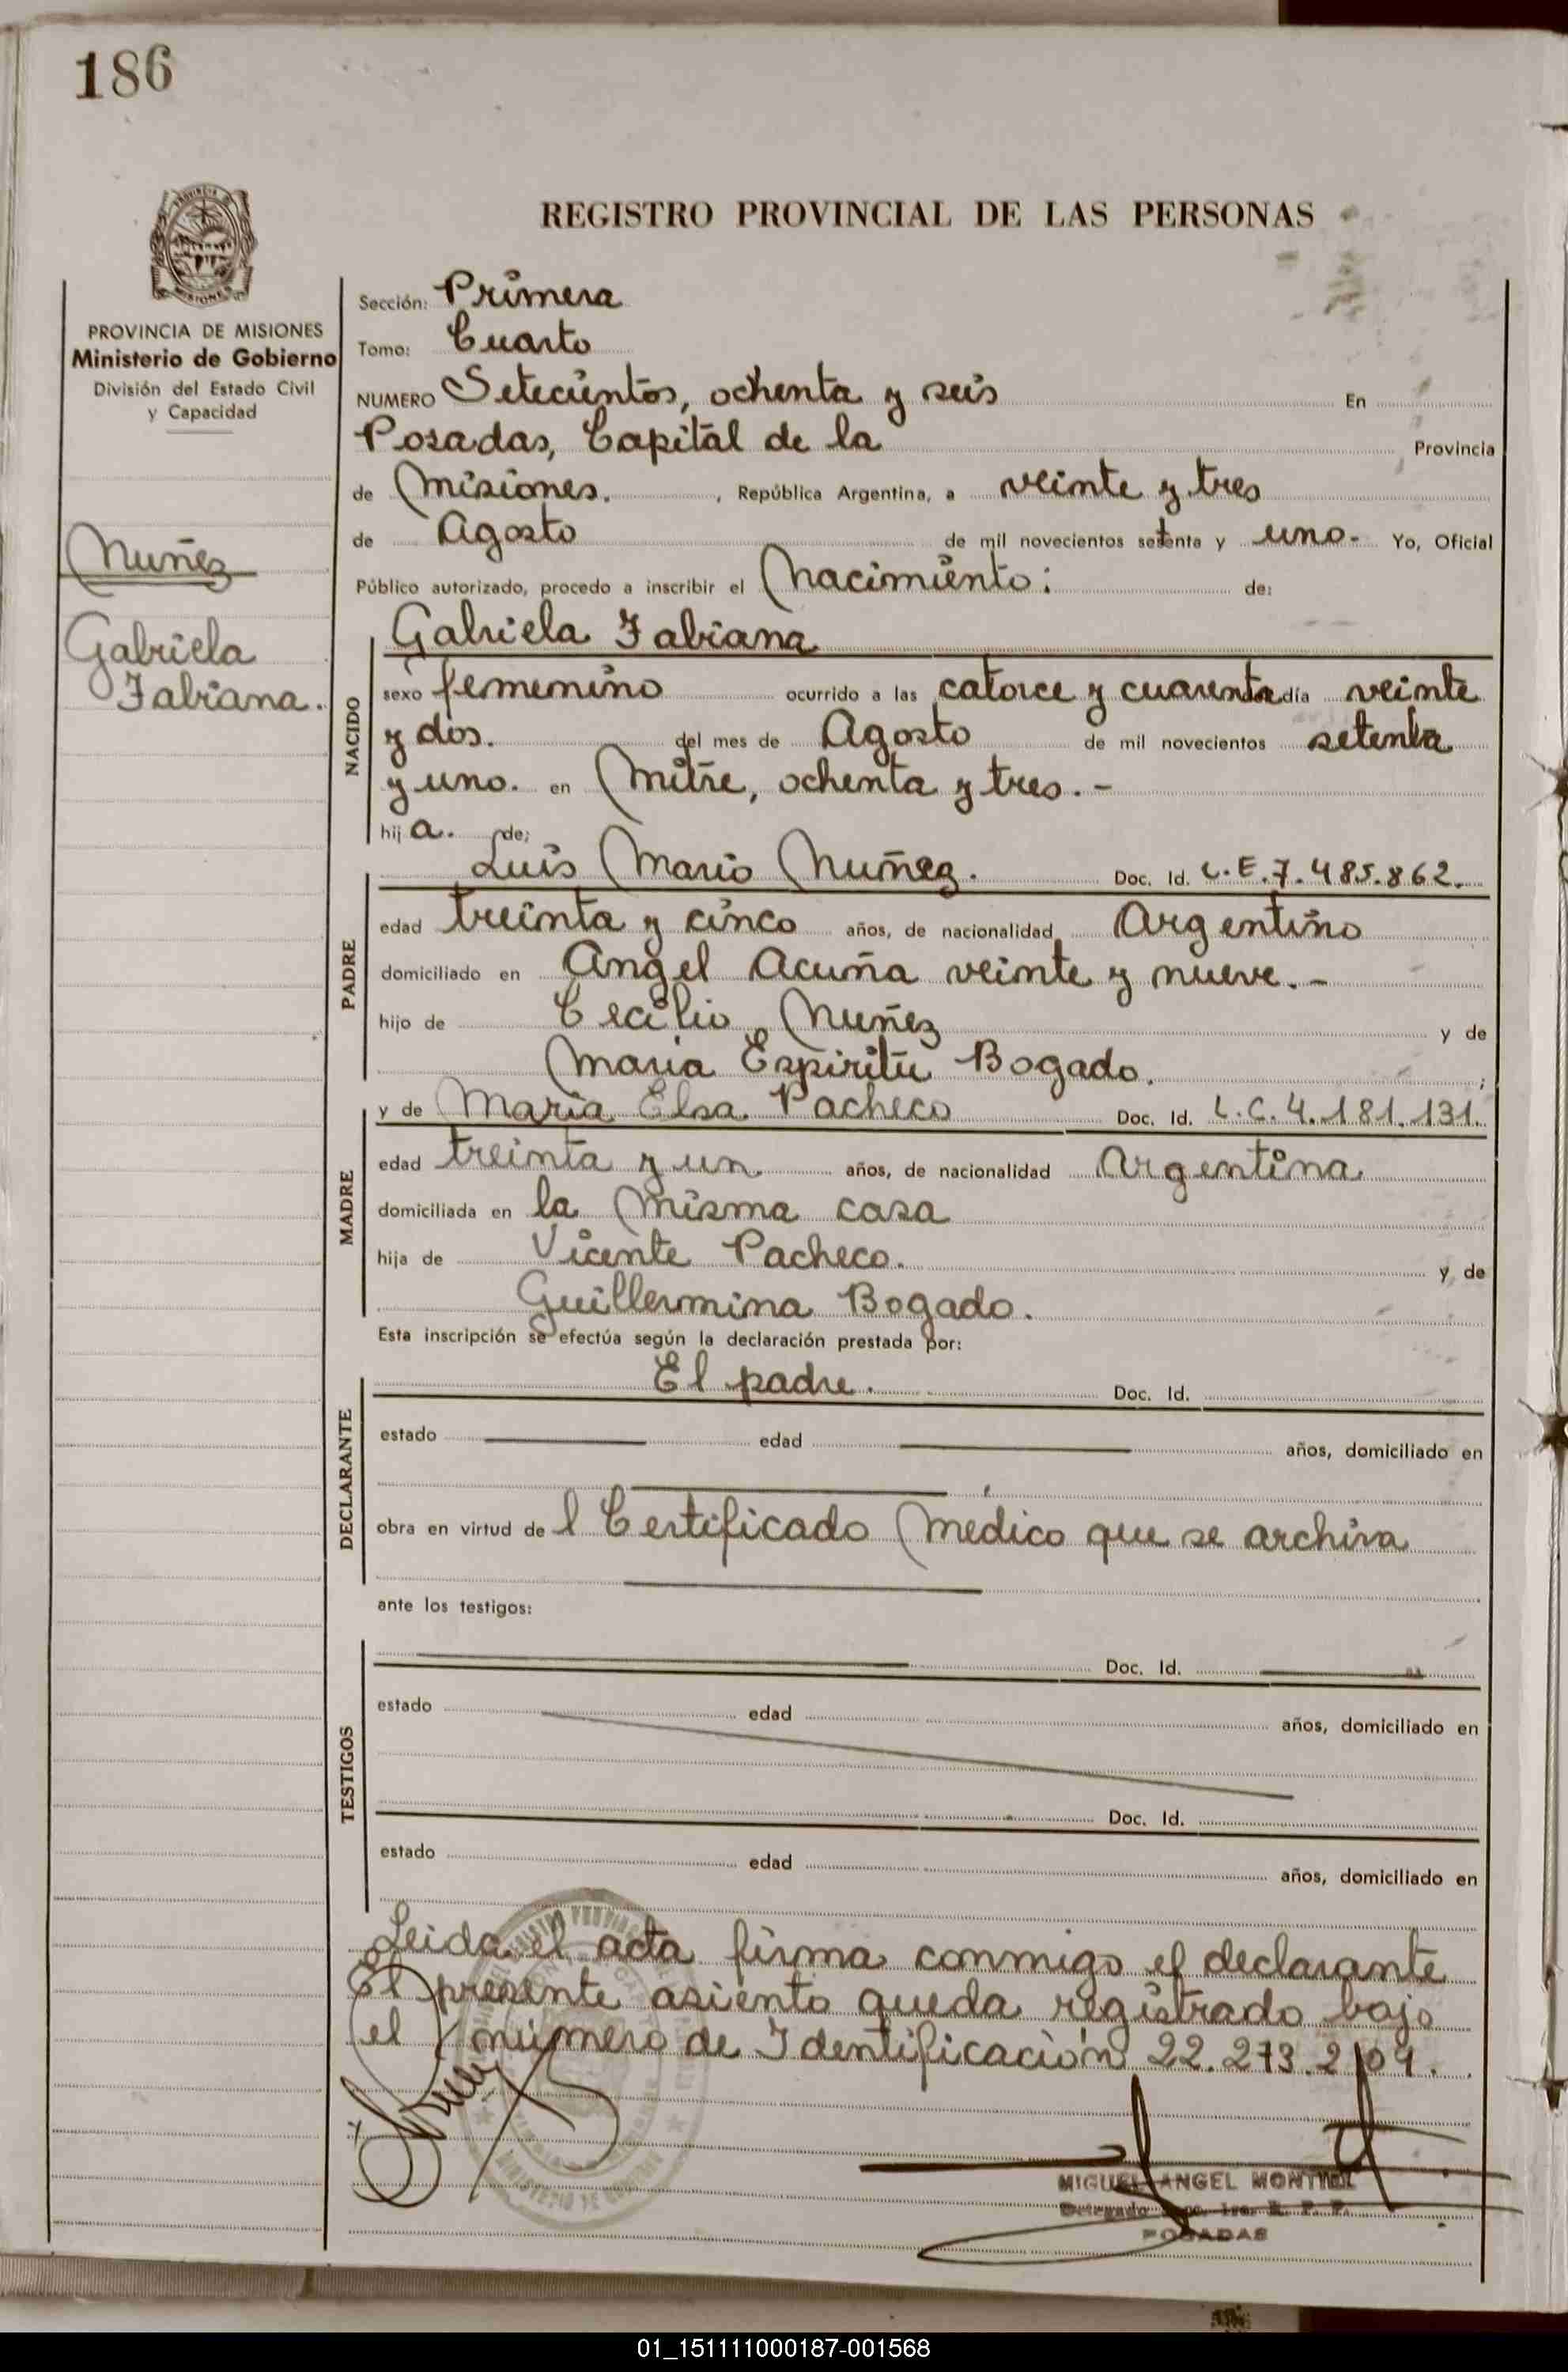 186
REGISTRO PROVINCIAL DE LAS PERSONAS
PROVINCIA DE MISIONES
Ministerio de Gobierno
División del Estado Civil
y Capacidad
Nuñez
Gabriela
Fabiana.
Sección: Primera
Tomo: Cuarto
NUMERO Setecientos, ochenta y seis En
Posadas, Capital de la Provincia
de Misiones. , República Argentina, a veinte y tres
de Agosto de mil novecientos setenta y uno.- Yo, Oficial
Público autorizado, procedo a inscribir el Nacimiento: de:
NACIDO
Gabriela Fabiana
sexo femenino ocurrido a las catorce y cuarenta día veinte
y dos. del mes de Agosto de mil novecientos setenta
y uno. en Mitre, ochenta y tres.-
hij a. de;
PADRE
Luis Mario Nuñez. Doc. Id. L.E.7.485.862.
edad treinta y cinco años, de nacionalidad Argentino
domiciliado en Angel Acuña veinte y nueve.-
hijo de Cecilio Nuñez y de
Maria Espiritu Bogado. ;
MADRE
y de Maria Elsa Pacheco Doc. Id. L.C.4.181.131.
edad treinta y un años, de nacionalidad Argentina
domiciliada en la misma casa
hija de Vicente Pacheco. y de
Guillermina Bogado.
Esta inscripción se efectúa según la declaración prestada por:
DECLARANTE
El padre. Doc. Id.
estado edad años, domiciliado en
obra en virtud de l Certificado Medico que se archiva
ante los testigos:
TESTIGOS
Doc. Id.
estado edad años, domiciliado en
Doc. Id.
estado edad años, domiciliado en
Leida el acta firma conmigo el declarante
El presente asiento queda registrado bajo
el número de Identificación 22.273.209.
MIGUEL ANGEL MONTIEL
Delegado R. P. P.
POSADAS
01_151111000187-001568